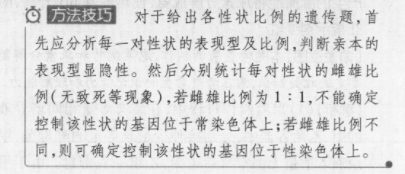 方法技巧 对于给出各性状比例的遗传题,首
先应分析每一对性状的表现型及比例,判断亲本的
表现型显隐性。然后分别统计每对性状的雌雄比
例(无致死等现象),若雌雄比例为1∶1,不能确定
控制该性状的基因位于常染色体上;若雌雄比例不
同,则可确定控制该性状的基因位于性染色体上。